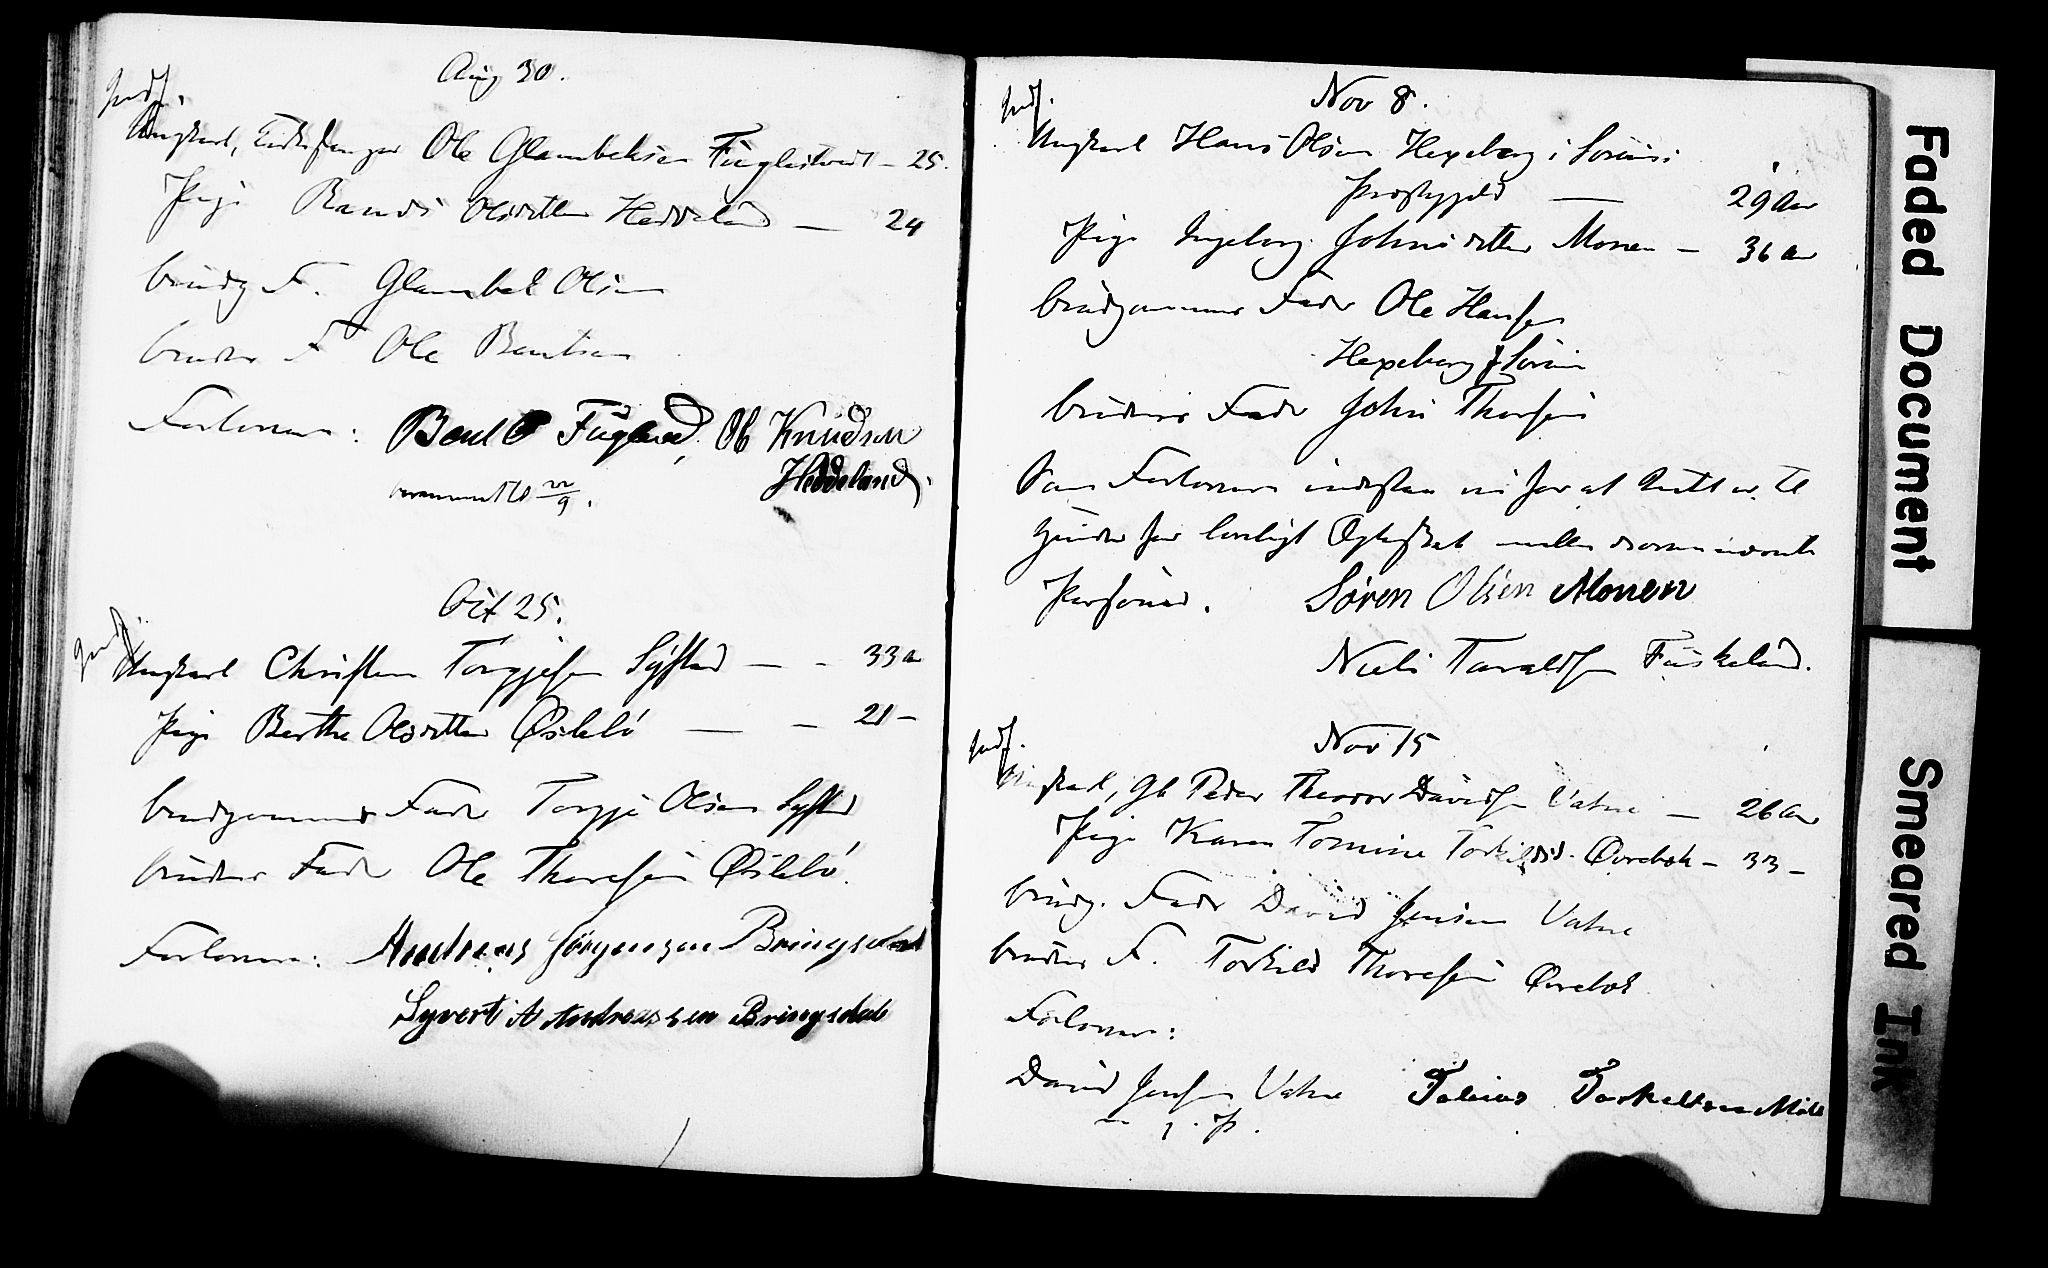 Aug 30.
Indf.
Ungkarl, Kirkesanger Ole Glambeksen Fuglestvedt – 25.
Pige Randi Olsdatter Heddeland — 24
brudg F. Glambek Olsen
brudens F Ole Bentsen
Forlovere: Bent O Fugland, Ole Knudsen
Heddeland.
22/9.
Oct 25.
Indf.
Ungkarl Christen Torgjesen Lyftad — - 33 a
Pige Berthe Olsdatter Øislebö — — 21 –
brudgommens Fader Torgje Olsen Lyftad
brudens Fader Ole Thoresen Øislebö.
Forlovere: Andreas Jörgensen Bringsdal
Syvert A Andreassen Bringsdal
Nov 8.
Indf.
Ungkarl Hans Olsen Hexeberg i
Præstegjeld — 29 Aar
Pige Ingeborg Johnsdatter Monen – 36 Aar
brudgommens Fader Ole Hansen
Hexeberg
brudens Fader John Thorsen
Som Forlovere indestaa vi for at Intet er til
Hinder for lovligt Ægteskab mellem ovennævnte
Personer. Søren Olsen Monen
Niels Taraldsen Fuskeland.
Nov 15
Indf.
Ungkarl, Gb Peder Theodor Davidsen Vatne — 26 Aar
Pige Karen Tomine Torkildsd. Øvrebök – 33 –
brudg. Fader David Jensen Vatne
brudens F. Torkild Thoresen Øvrebök
Forlovere:
David Jensen Vatne Tobias Torkeltsen
m. P.
Faded Document
Smeared Ink